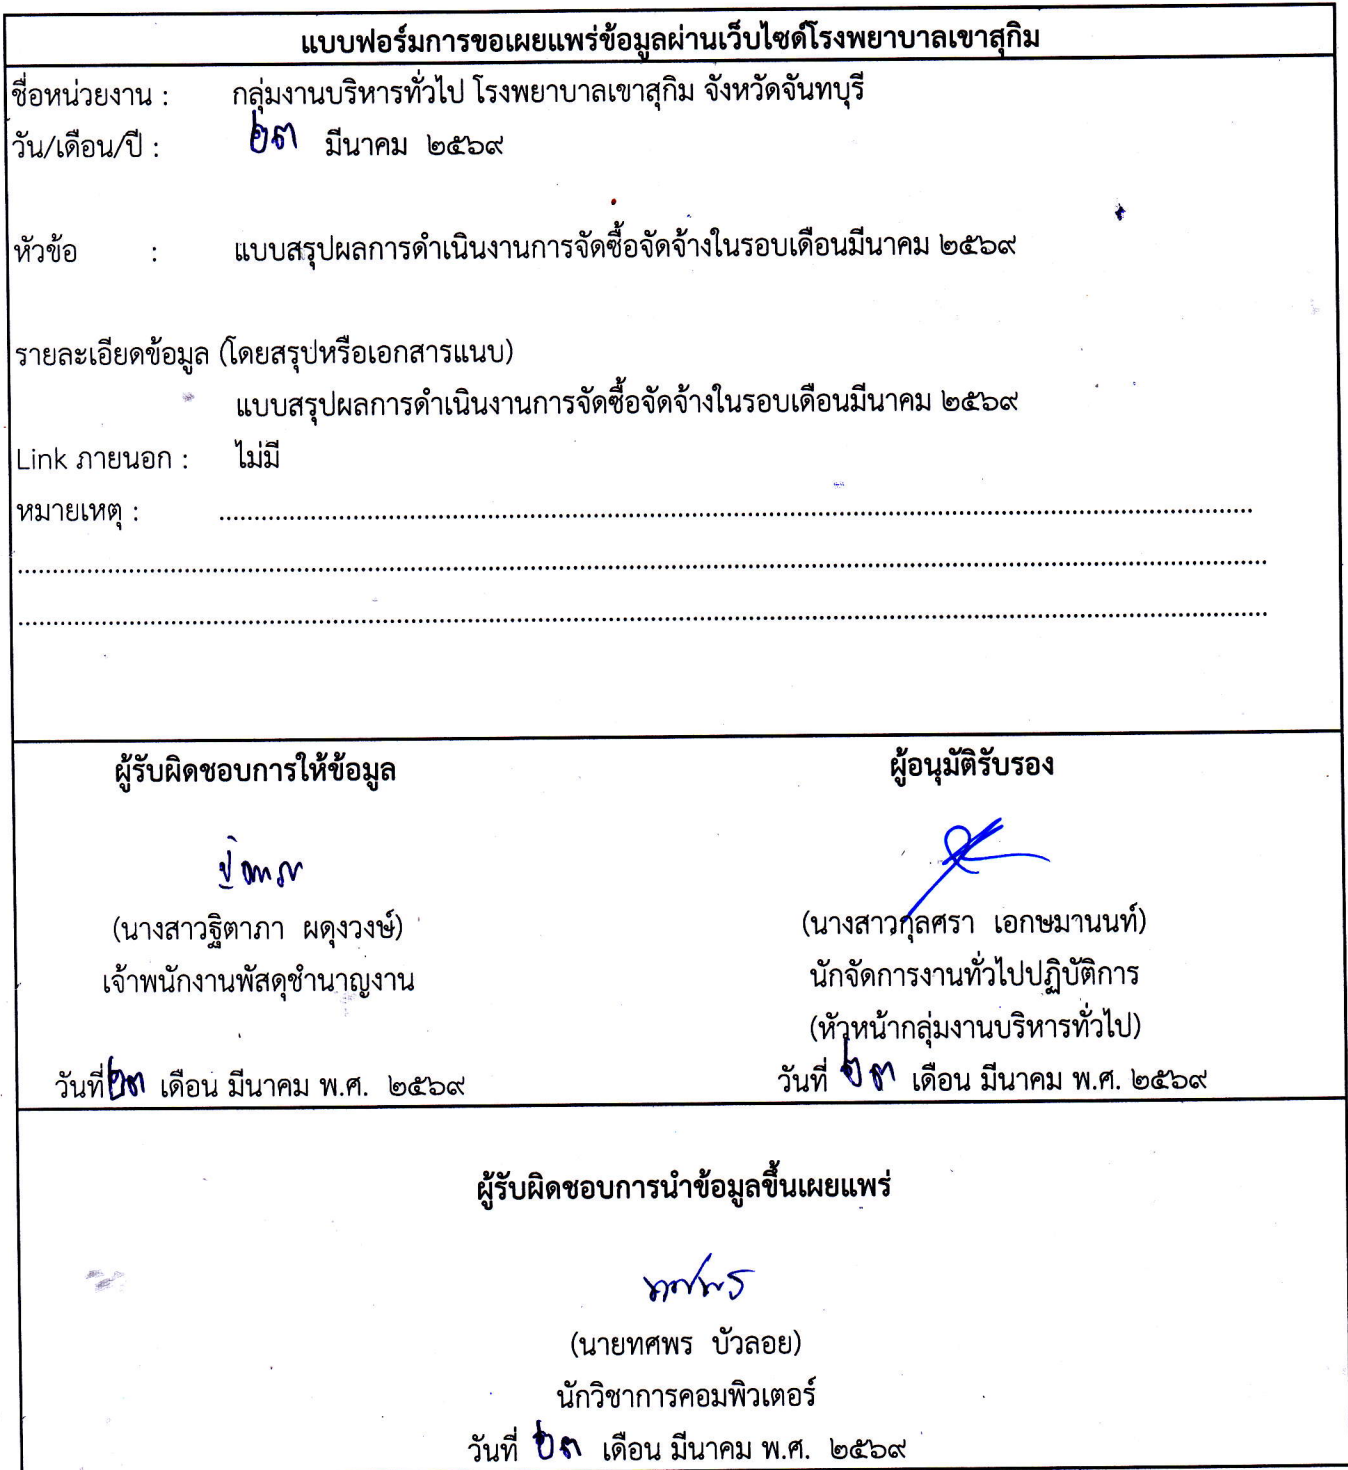 แบบฟอร์มการขอเผยแพร่ข้อมูลผ่านเว็บไซด์โรงพยาบาลเขาสุกิม
ชื่อหน่วยงาน : กลุ่มงานบริหารทั่วไป โรงพยาบาลเขาสุกิม จังหวัดจันทบุรี
วัน/เดือน/ปี : ๒๓ มีนาคม ๒๕๖๙
หัวข้อ : แบบสรุปผลการดำเนินงานการจัดซื้อจัดจ้างในรอบเดือนมีนาคม ๒๕๖๙
รายละเอียดข้อมูล (โดยสรุปหรือเอกสารแนบ)
แบบสรุปผลการดำเนินงานการจัดซื้อจัดจ้างในรอบเดือนมีนาคม ๒๕๖๙
Link ภายนอก : ไม่มี
หมายเหตุ :
ผู้รับผิดชอบการให้ข้อมูล
(นางสาวฐิตาภา ผดุงวงษ์)
เจ้าพนักงานพัสดุชำนาญงาน
วันที่ ๒๓ เดือน มีนาคม พ.ศ. ๒๕๖๙
ผู้อนุมัติรับรอง
(นางสาวกุลศรา เอกษมานนท์)
นักจัดการงานทั่วไปปฏิบัติการ
(หัวหน้ากลุ่มงานบริหารทั่วไป)
วันที่ ๒๓ เดือน มีนาคม พ.ศ. ๒๕๖๙
ผู้รับผิดชอบการนำข้อมูลขึ้นเผยแพร่
ทศพร
(นายทศพร บัวลอย)
นักวิชาการคอมพิวเตอร์
วันที่ ๒๓ เดือน มีนาคม พ.ศ. ๒๕๖๙